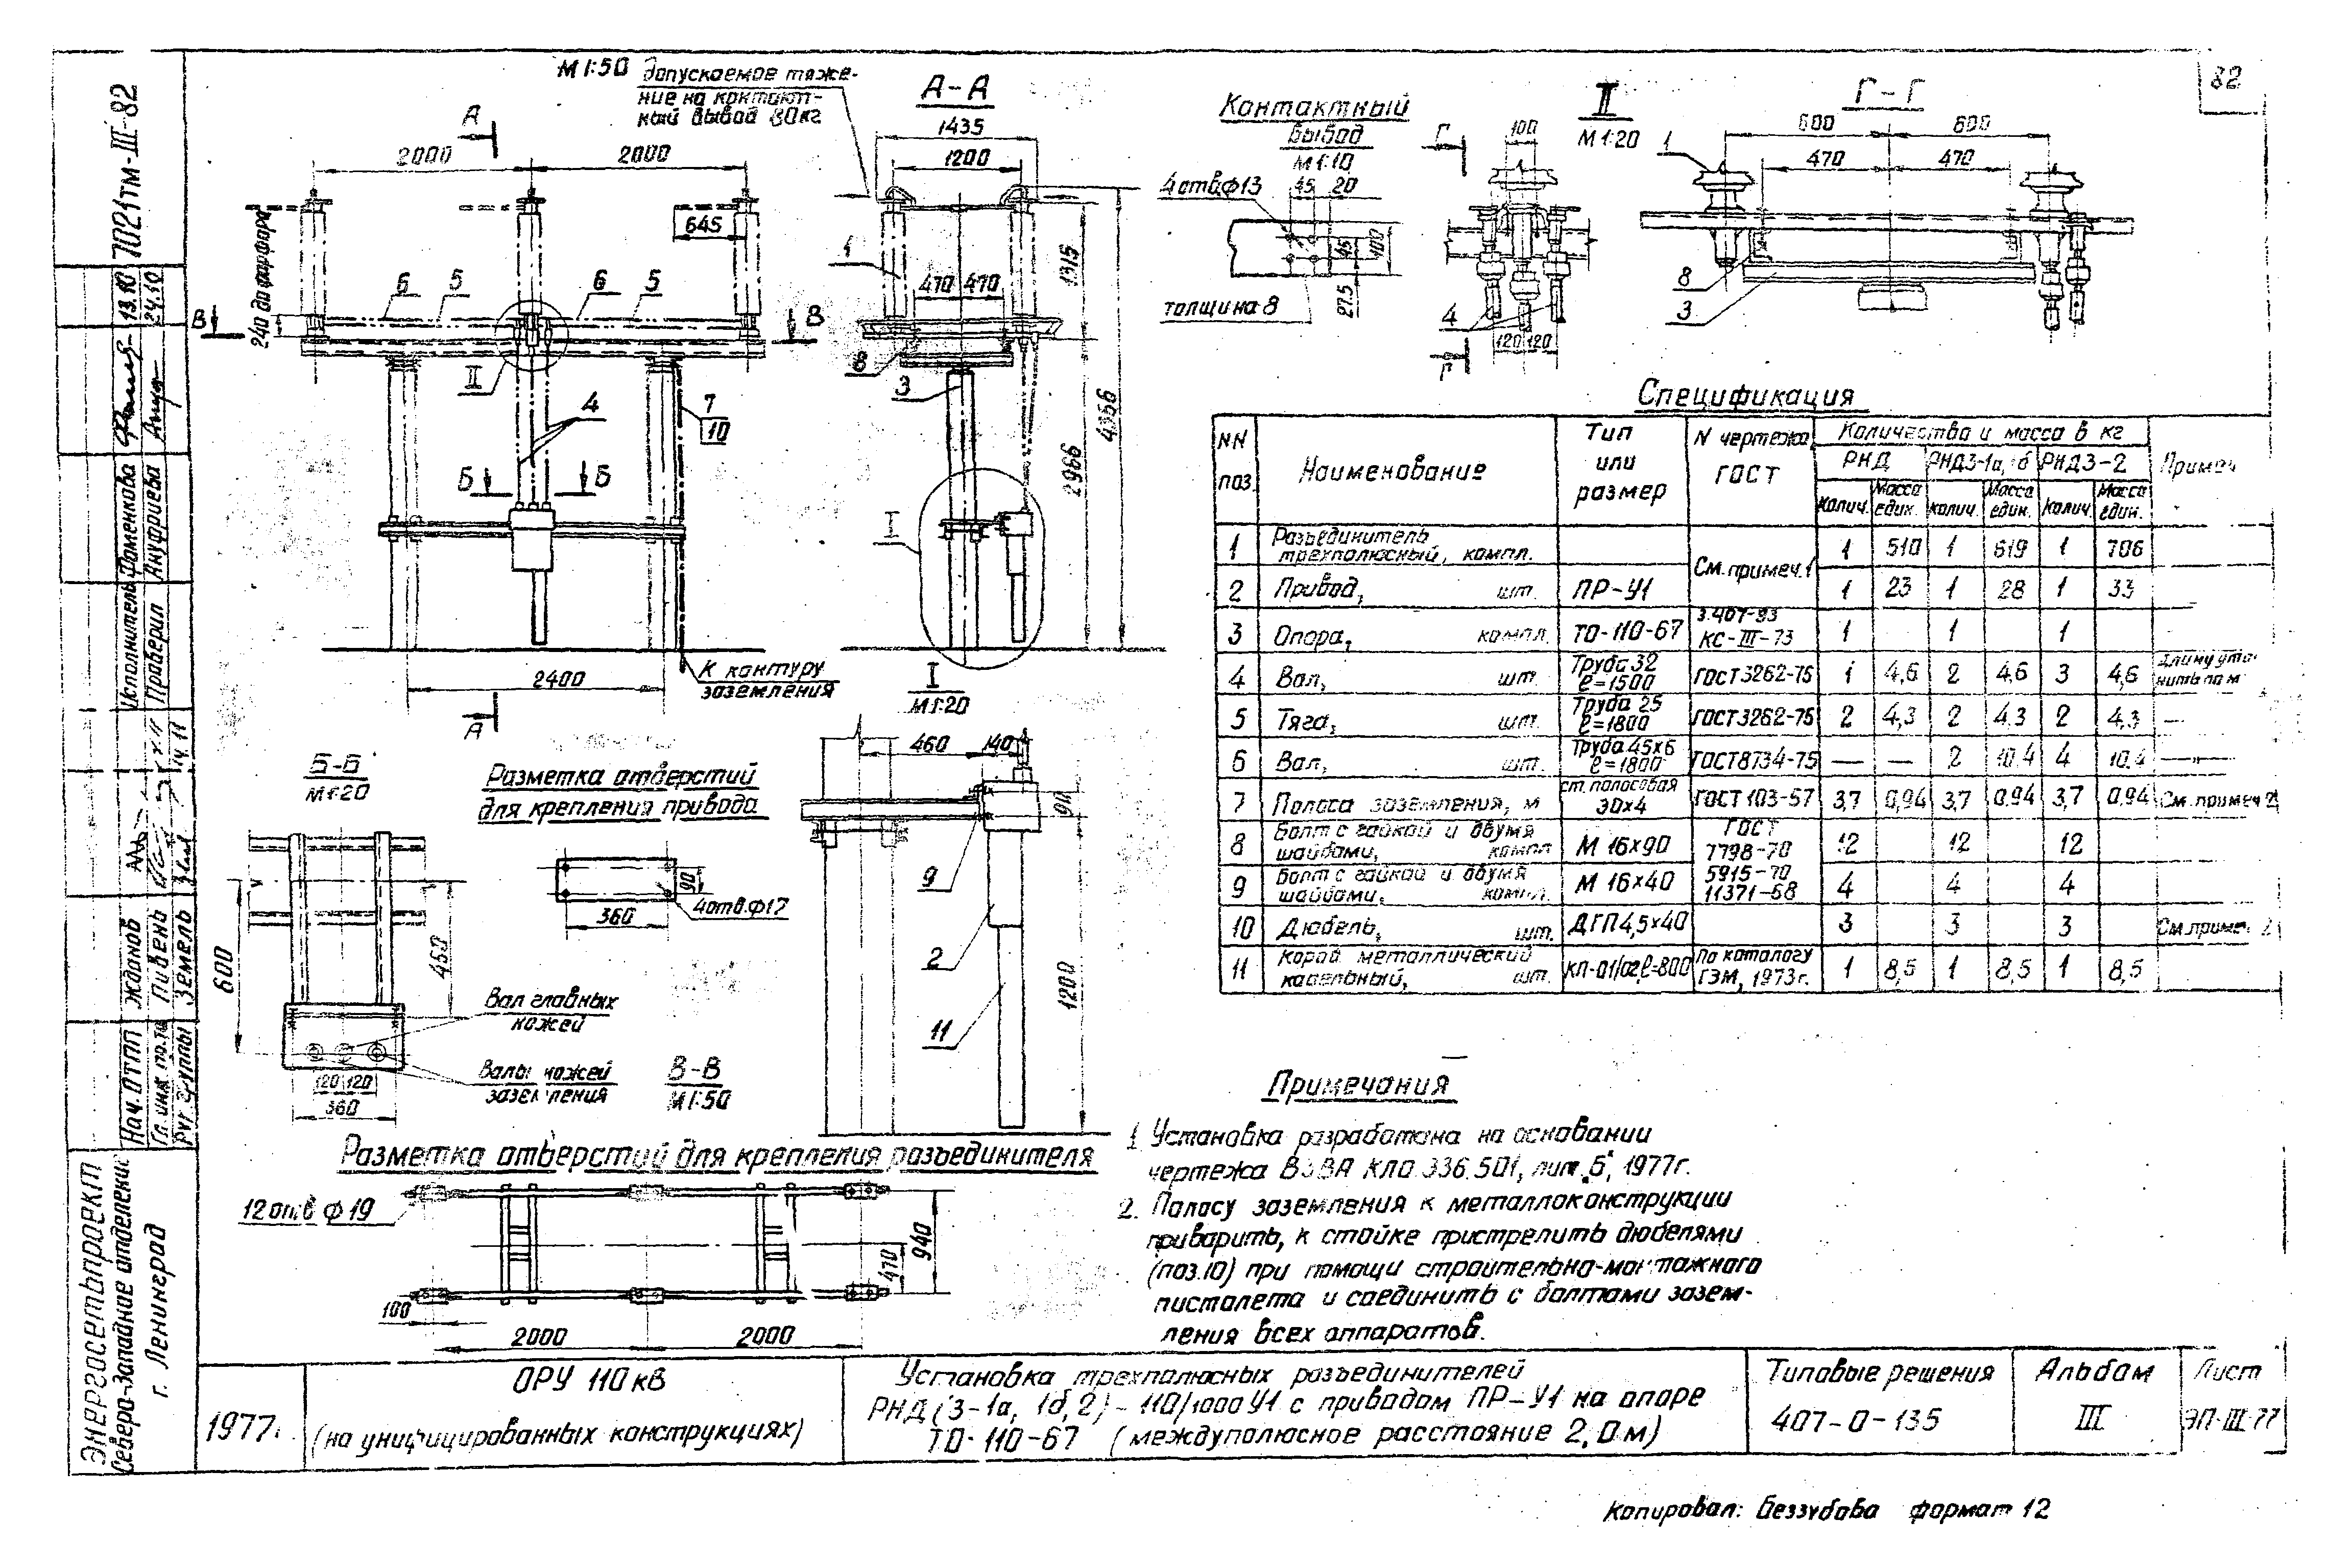 82
7021тм-III-82
М 1:50
Допускаемое тяже-
ние на контакт-
ный вывод 80кг
А
2000
2000
645
240 до фарфора
6
5
6
5
В
В
II
4
7
10
Б
Б
2400
А
К контуру
заземления
А-А
1435
1200
1
470
470
1315
8
3
4356
2966
I
Контактный
вывод
М 1:10
4 отв.ф13
45
20
45
100
27.5
толщина 8
II
М 1:20
Г
100
4
120
120
Г
Г-Г
600
600
1
470
470
8
3
Б-Б
М 1:20
600
450
120
120
360
Вал главных
ножей
Валы ножей
заземления
Разметка отверстий
для крепления привода
90
360
4отв.ф17
I
М 1:20
460
140
90
9
2
1200
11
В-В
М 1:50
Разметка отверстий для крепления разъединителя
12 отв ф 19
940
470
100
2000
2000
Спецификация
NN
поз.
Наименование
Тип
или
размер
N чертежа,
ГОСТ
Количество и масса в кг
РНД
РНДЗ-1а, 1б
РНДЗ-2
Примеч
Колич.
Масса един.
Колич.
Масса един.
Колич.
Масса един.
1 Разъединитель трехполюсный, компл. См. примеч. 1 1 510 1 619 1 706
2 Привод, шт. ПР-У1 1 23 1 28 1 33
3 Опора, компл. ТО-110-67 3.407-93 КС-III-73 1 1 1
4 Вал, шт. Труба 32 ℓ=1500 ГОСТ 3262-75 1 4,6 2 4,6 3 4,6 Длину уточнить по м
5 Тяга, шт. Труба 25 ℓ=1800 ГОСТ 3262-75 2 4,3 2 4.3 2 4,3 —
6 Вал, шт. Труба 45х6 ℓ=1800 ГОСТ 8734-75 — — 2 10.4 4 10,4 —"—
7 Полоса заземления, м ст. полосовая 30х4 ГОСТ 103-57 3,7 0,94 3,7 0.94 3,7 0,94 См. примеч 2
8 Болт с гайкой и двумя шайбами, компл М 16х90 ГОСТ 7798-70 12 12 12
9 Болт с гайкой и двумя шайбами, компл. М 16х40 5915-70 11371-68 4 4 4
10 Дюбель, шт. ДГП4,5х40 3 3 3 См. примеч. 2
11 Короб металлический кабельный, шт. КП-01/02,ℓ=800 По каталогу ГЭМ, 1973г. 1 8,5 1 8,5 1 8,5
Примечания
1. Установка разработана на основании
чертежа ВЗВА КЛО.336.501, лит. „Б", 1977г.
2. Полосу заземления к металлоконструкции
приварить, к стойке пристрелить дюбелями
(поз.10) при помощи строительно-монтажного
пистолета и соединить с болтами зазем-
ления всех аппаратов.
13.10
24.10
Исполнитель Фоменкова
Проверил Ануфриева
14.11
Нач. ОТПП Жданов
Гл. инж. пр-та Пивень
Рук. группы Земель
Энергосетьпроект
Северо-Западное отделение
г. Ленинград
1977г.
ОРУ 110 кВ
(на унифицированных конструкциях)
Установка трехполюсных разъединителей
РНД (З-1а, 1б, 2)-110/1000 У1 с приводом ПР-У1 на опоре
ТО-110-67 (междуполюсное расстояние 2,0м)
Типовые решения
407-0-135
Альбом
III
Лист
ЭП-III-77
Копировал: Беззубова формат 12